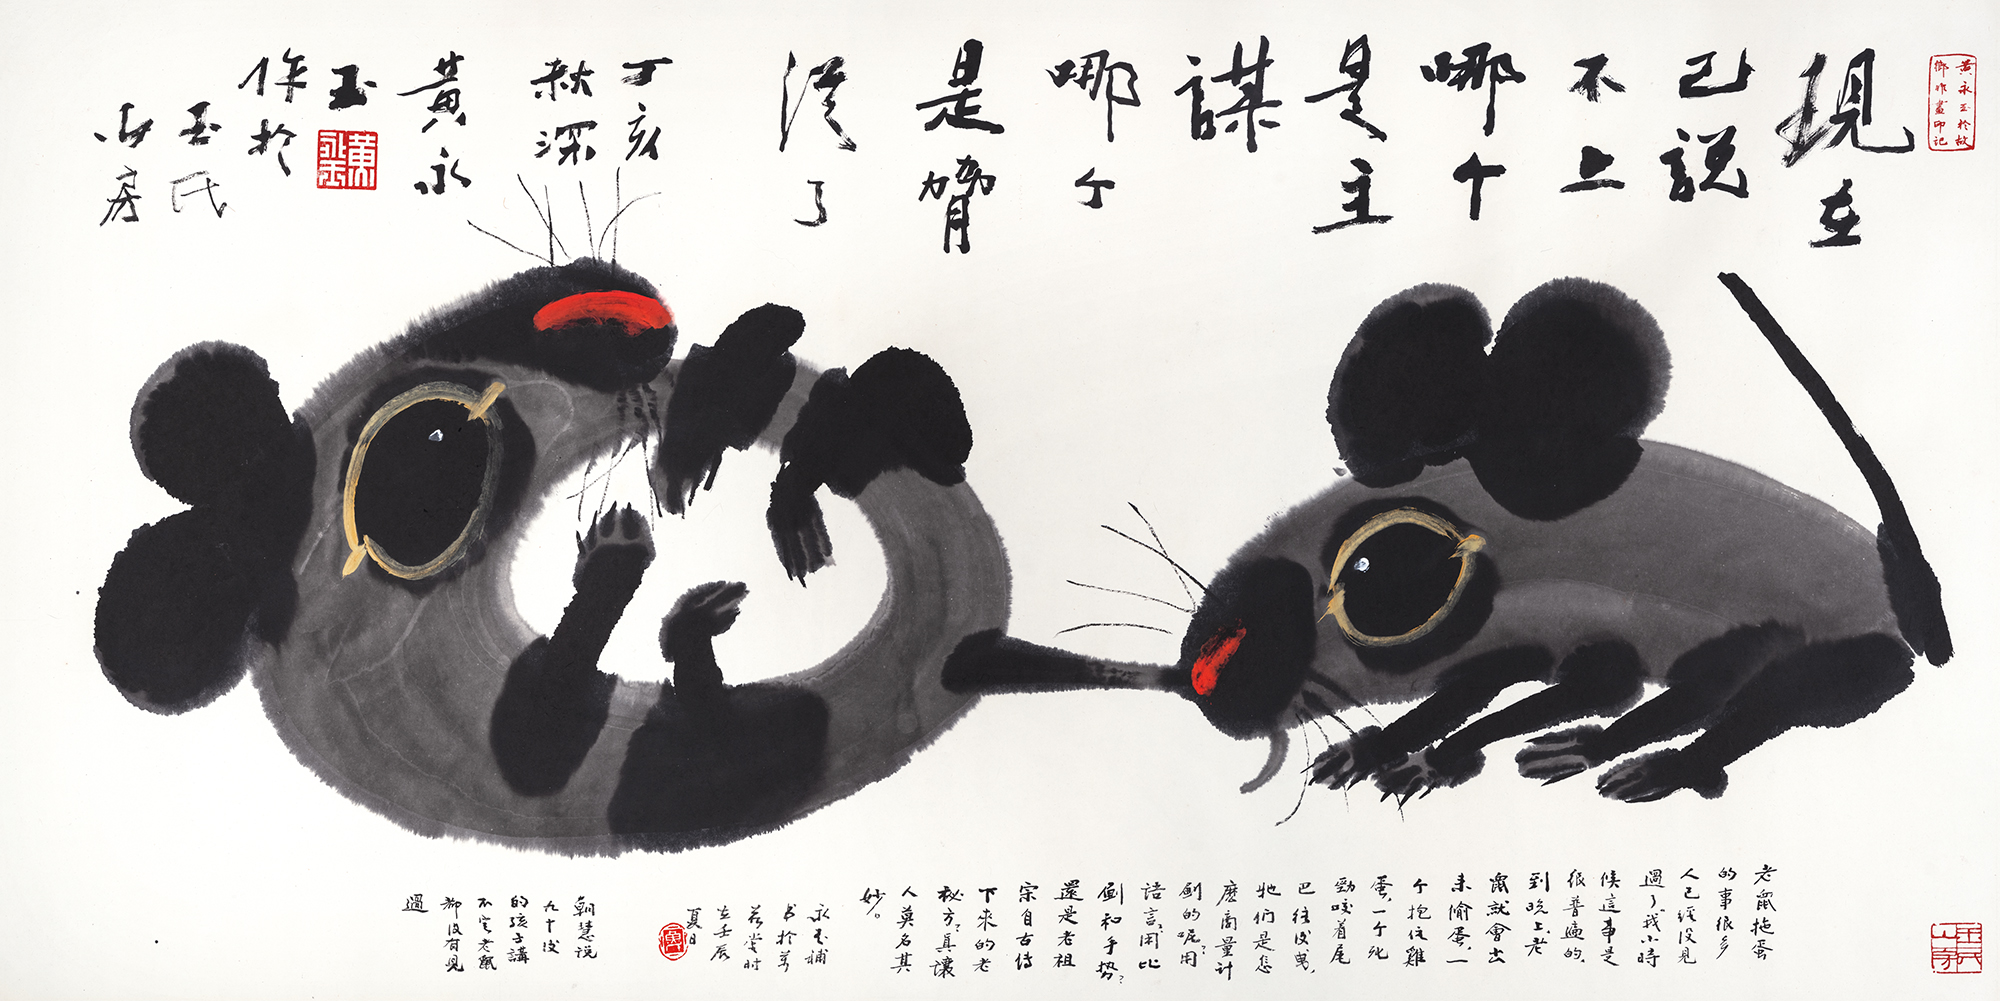 現在
已説
不上
哪个
是主
謀
哪个
是脅
從了
丁亥
秋深
黃永
玉
作於
玉氏
山房
黃永玉於故
鄉作畫印記
老鼠拖蛋
的事很多
人已經没見
過了,我小時
候這事是
很普遍的,
到晚上,老
鼠就會出
来偷蛋,一
个抱住雞
蛋,一个死
勁咬着尾
巴往後曳,
牠們是怎
麽商量計
劃的呢?用
語言?用比
劃和手势?
還是老祖
宗自古傳
下来的老
秘方?真讓
人莫名其
妙。
永玉補
书於萬
荷堂时
在壬辰
夏日
朝慧説
九十後
的孩子講
不定老鼠
都没有見
過
玉氏
山房